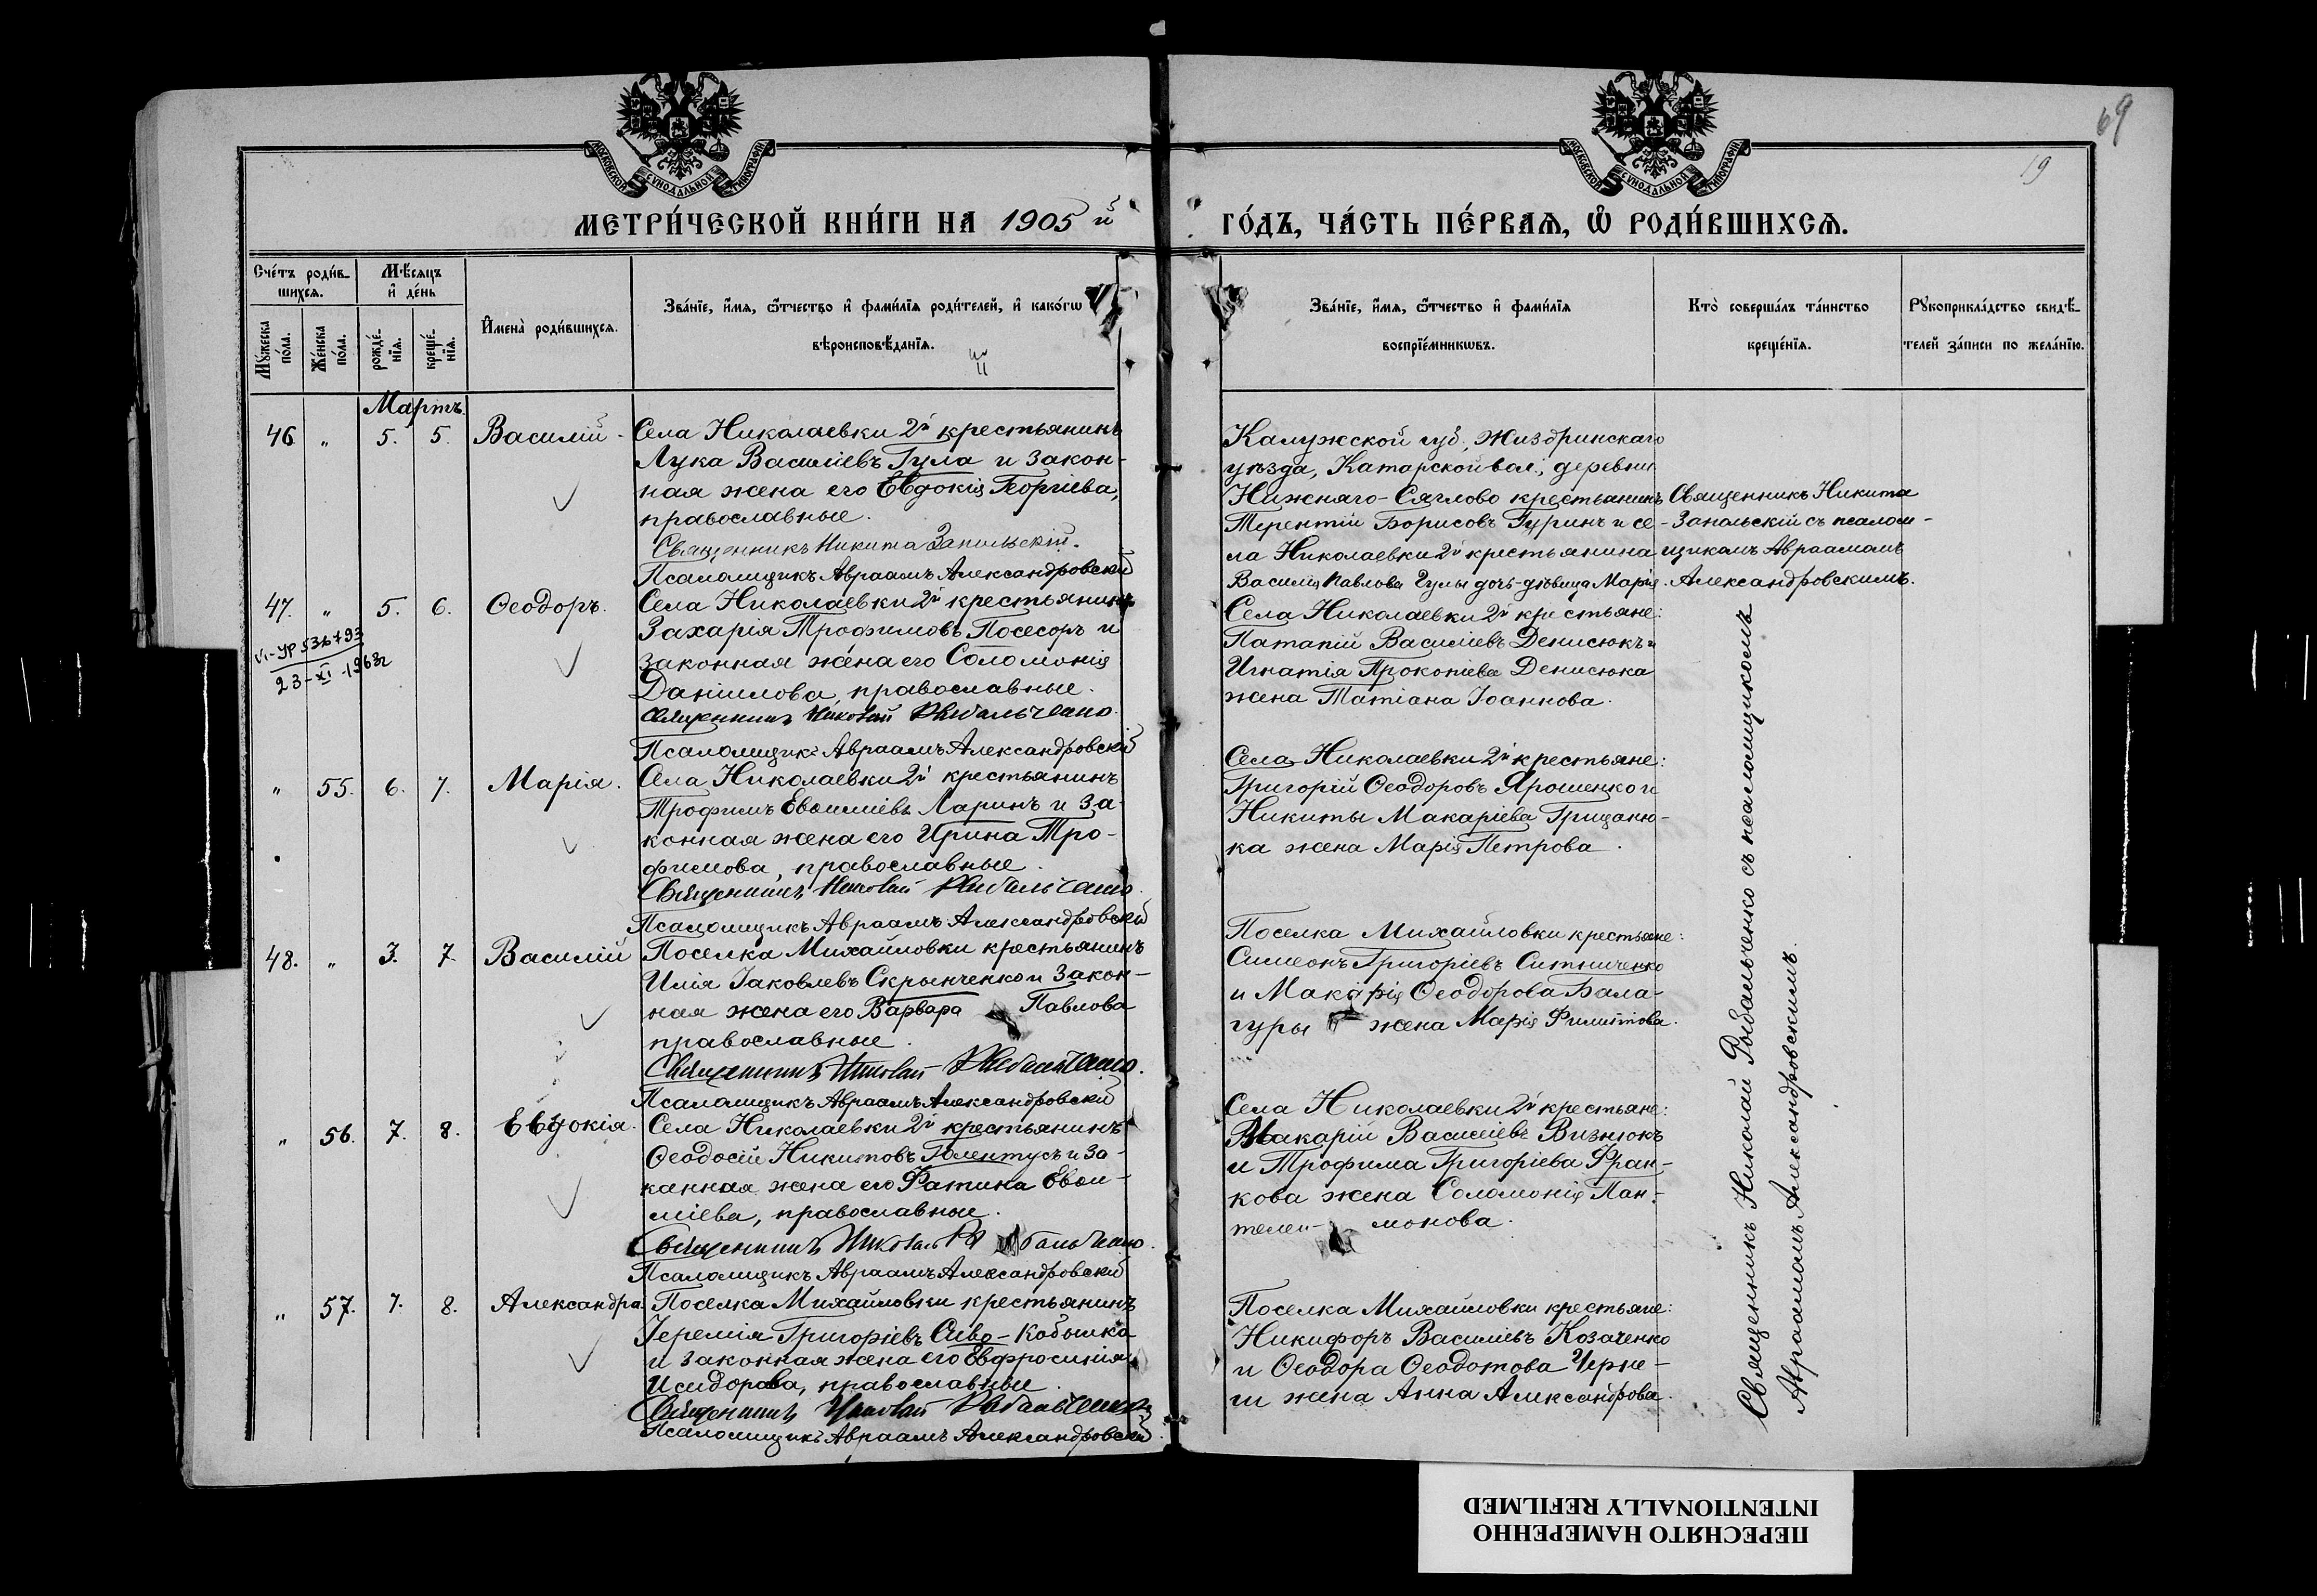 69
19
МОСКОВСКОЙ СѴНОДАЛЬНОЙ ТИПОГРАФІИ
МОСКОВСКОЙ СѴНОДАЛЬНОЙ ТИПОГРАФІИ
МЕТРИ́ЧЕСКОЙ КНИ́ГИ НА 1905 й ГО́ДЪ, ЧА́СТЬ ПЕ́РВАЯ, Ѡ РОДИ́ВШИХСЯ.
Сче́тъ роди́в-
шихся.
Мꙋжеска
по́ла.
Же́нска
по́ла.
Мѣ́сяцъ
и҆ де́нь
рожде́-
нїя.
креще́-
нїя.
И҆мена̀ роди́вшихся.
Зва́нїе, и҆́мя, ѻ҆́тчество и҆ фами́лїя роди́телей, и҆ како́гѡ
вѣроисповѣ́данїя.
Зва́нїе, и҆́мя, ѻ҆́тчество и҆ фами́лїя
воспрїе́мникѡвъ.
Кто̀ соверша́лъ та́инство
креще́нїя.
Рꙋкоприкла́дство свидѣ́-
телей за́писи по жела́нїю.
Мартъ.
46 " 5. 5. Василій
Села Николаевки 2й крестьянинъ
Лука Василіевъ Гула и закон-
ная жена его Евдокія Георгіева,
православные.
Священникъ Никита Запольскій.
Псаломщикъ Авраамъ Александровскій
Калужской губ., Жиздринскаго
уѣзда, Катарской вол., деревни
Нижняго-Сяглово крестьянинъ
Терентій Борисовъ Гуринъ и се-
ла Николаевки 2й крестьянина
Василія Павлова Гулы дочь-дѣвица Марія.
Священникъ Никита
Запольскій съ псалом-
щикомъ Авраамомъ
Александровскимъ.
47. " 5. 6. Ѳеодоръ.
VI-УР 536793
23-XI-1963г
Села Николаевки 2й крестьянинъ
Захарія Трофимовъ Посесоръ и
законная жена его Соломонія
Даніилова, православные.
Священникъ Николай Рыбальченко.
Псаломщикъ Авраамъ Александровскій
Села Николаевки 2й крестьяне:
Патапій Василіевъ Денисюкъ и
Игнатія Прокопіева Денисюка
жена Татіана Іоаннова.
" 55. 6. 7. Марія.
Села Николаевки 2й крестьянинъ
Трофимъ Евѳиміевъ Ларинъ и за-
конная жена его Ирина Тро-
фимова, православные.
Священникъ Николай Рыбальченко.
Псаломщикъ Авраамъ Александровскій
Села Николаевки 2й крестьяне:
Григорій Ѳеодоровъ Ярошенко и
Никиты Макаріева Грицаню-
ка жена Марія Петрова.
48. " 3. 7. Василій
Поселка Михайловки крестьянинъ
Илія Іаковлевъ Скрынченко и закон-
ная жена его Варвара Павлова
православные.
Священникъ Николай Рыбальченко.
Псаломщикъ Авраамъ Александровскій
Поселка Михайловки крестьяне:
Симеонъ Григоріевъ Ситниченко
и Макарія Ѳеодорова Бала-
гуры жена Марія Филиппова.
" 56. 7. 8. Евдокія.
Села Николаевки 2й крестьянинъ
Ѳеодосій Никитовъ и за-
канная жена его Фатина Евѳи-
міева, православные.
Священникъ Николай Рыбальченко.
Псаломщикъ Авраамъ Александровскій
Села Николаевки 2й крестьяне:
Макарій Василіевъ Визнюкъ
и Трофима Григоріева Фран-
кова жена Соломонія Пан-
телеи- монова.
" 57. 7. 8. Александра.
Поселка Михайловки крестьянинъ
Іеремія Григоріевъ Сиво-Кобылка
и законная жена его Евфросинія
Исидорова, православные.
Священникъ Николай Рыбальченко
Псаломщикъ Авраамъ Александровскій
Поселка Михайловки крестьяне:
Никифоръ Василіевъ Козаченко
и Ѳеодора Ѳеодотова Черне-
ги жена Анна Александрова.
Священникъ Николай Рыбальченко съ псаломщикомъ
Авраамомъ Александровскимъ.
ПЕРЕСНЯТО НАМЕРЕННО
INTENTIONALLY REFILMED